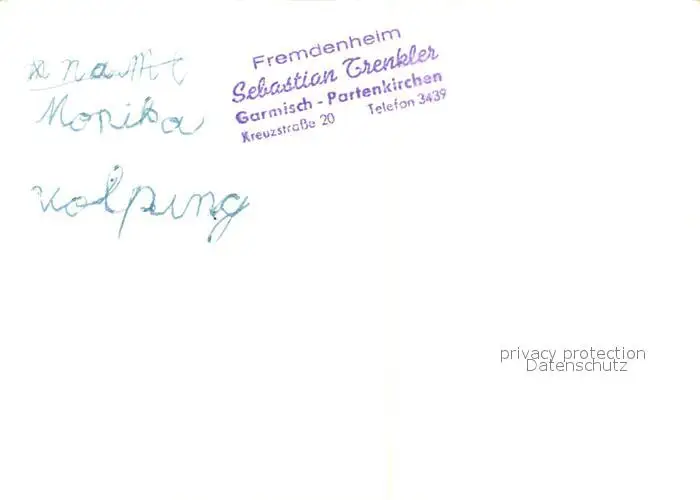 Monika
Kolping
Fremdenheim
Sebastian Trenkler
Garmisch - Partenkirchen
Kreuzstraße 20 Telefon 3439
privacy protection
Datenschutz